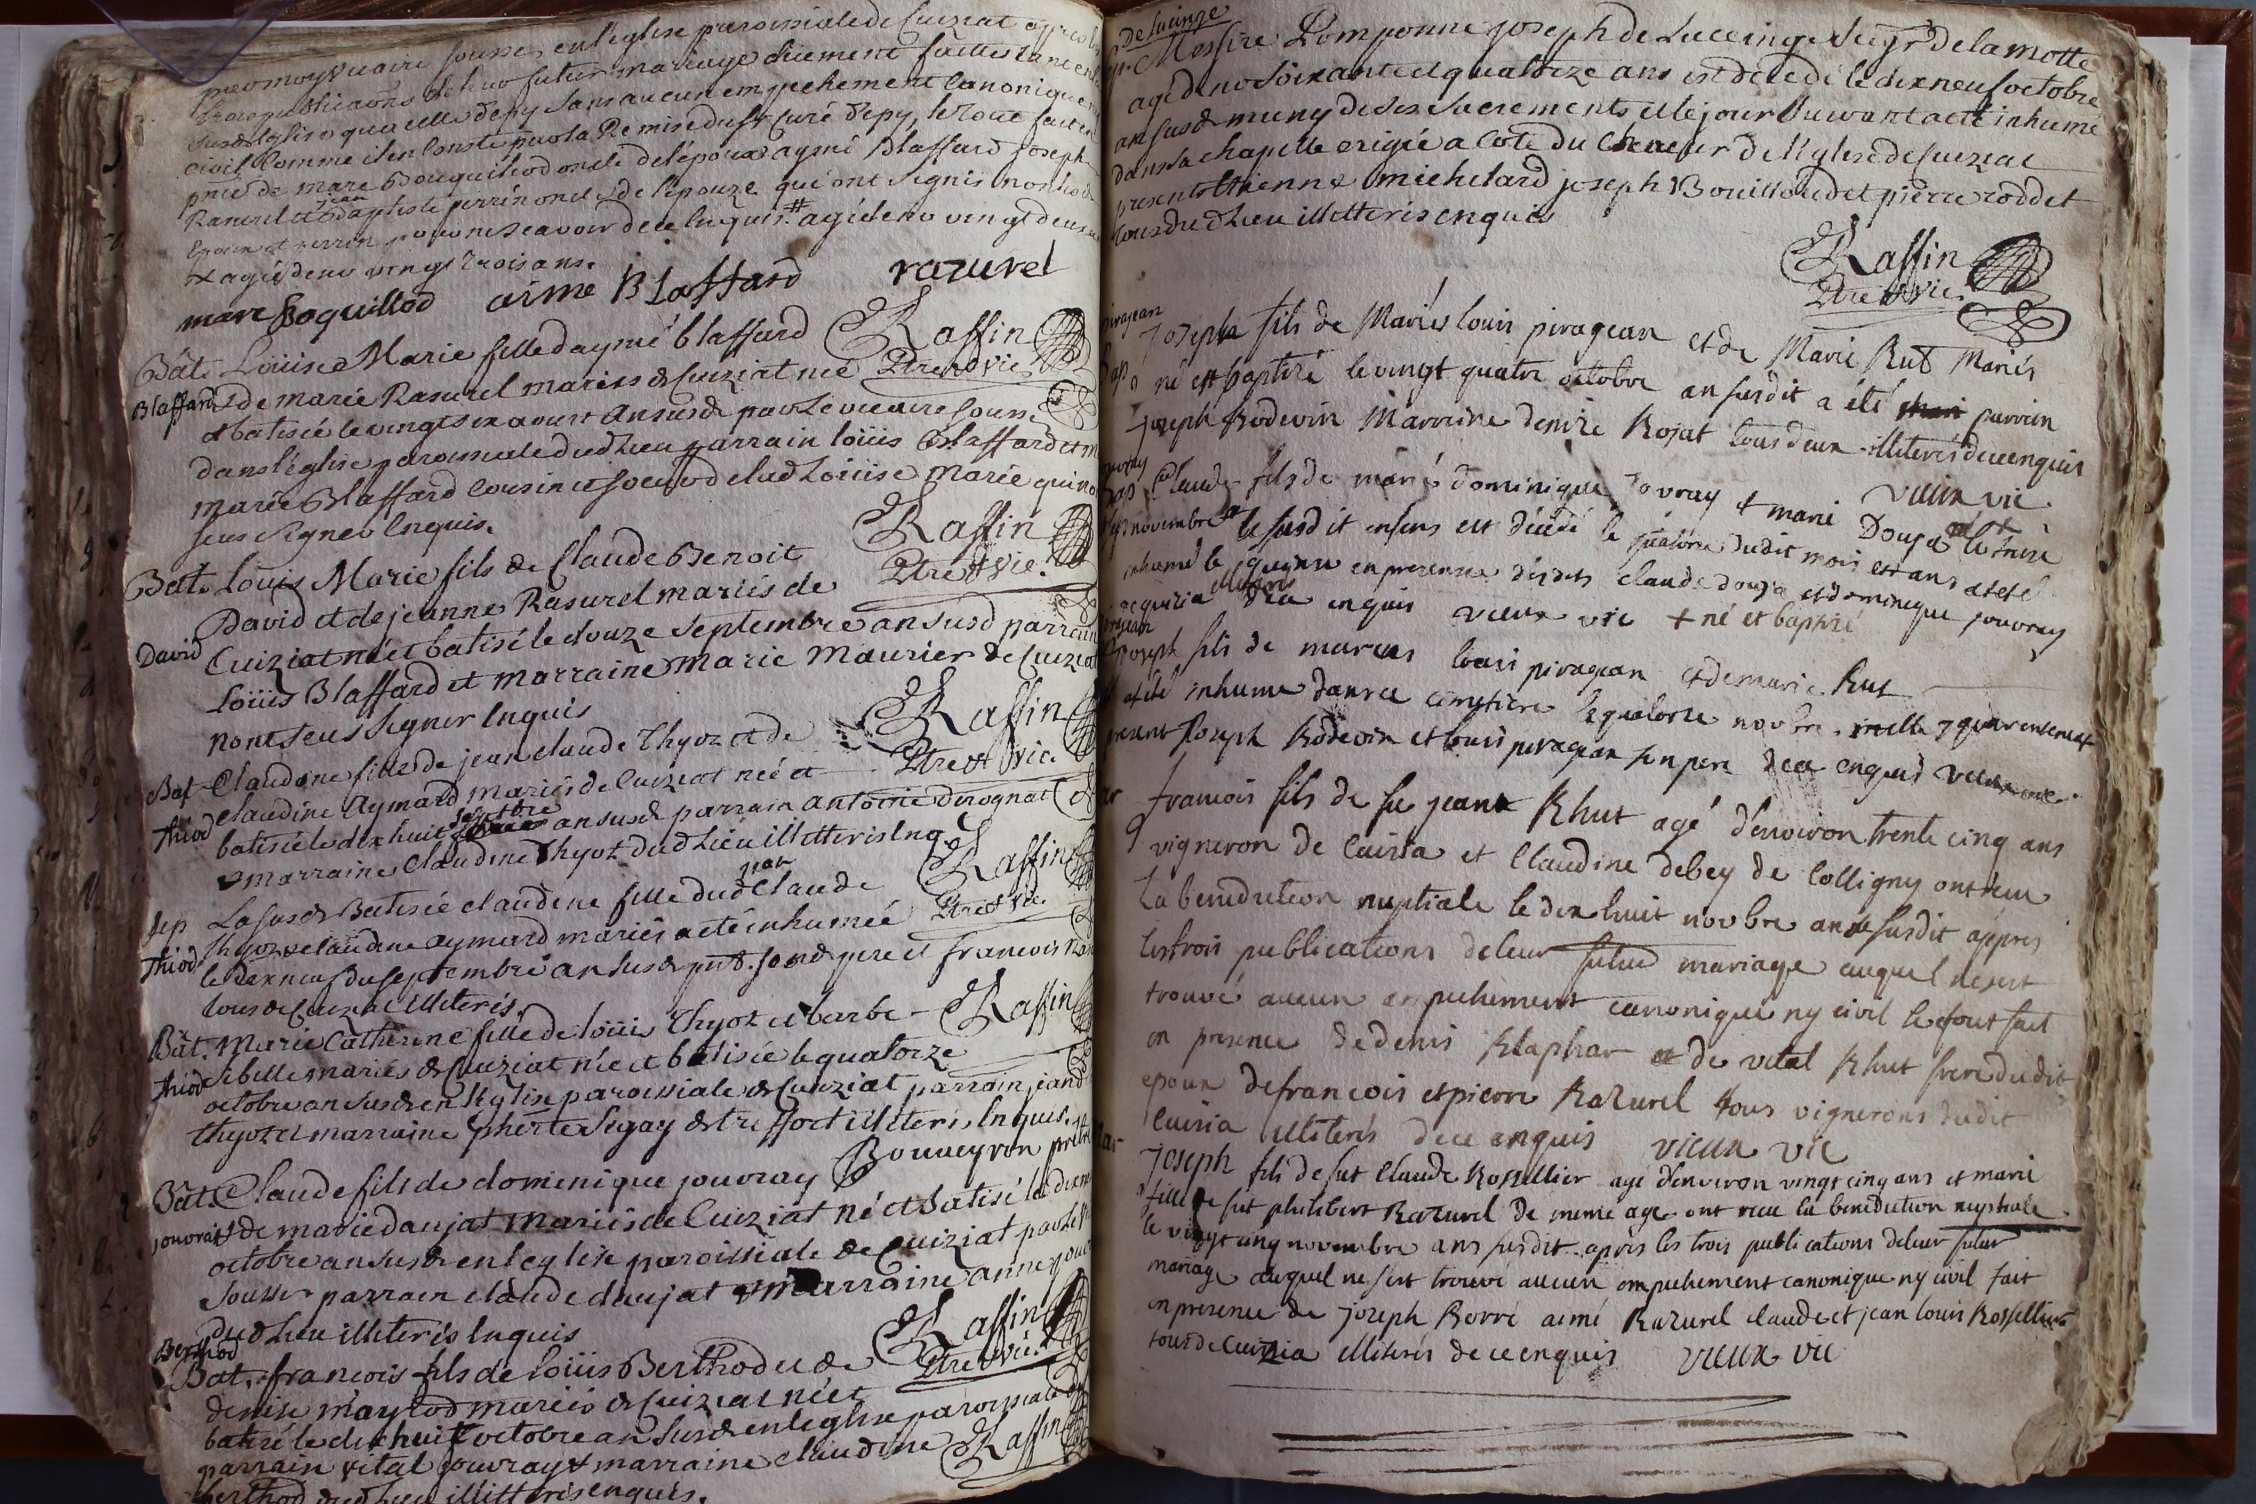 par moy vicaire soussné en l'eglise paroissiale de Cuiziat appres les
trois publicaons de leur futur mariage duement faittes tant en la
susd. Eglise qu'a celle d'epy sans aucun empechement canonique ny
civil comme il en Conste par la Remise du sr Curé d'epy, le tout fait en
pnce de marc Boquillod oncle de l'epoux aymé Blaffard joseph
Razurel et jean Baptiste perrin oncle de l'epouze qui ont signés non led.
Epoux et perrin pour ne scavoir de ce Enquis. # agé denv vingt deux ans
# agée denv vingt trois ans.
marc Boquillod aime Blaffard razurel
Bat. Louise Marie fille d'aymé blaffard Raffin
Blaffard et de marie Rasurel mariés de Cuiziat née Ptre et vic.
et batisée le vingt six aoust an susd. par le vicaire souss.
dans l'église paroissiale dud. Lieu parrain loüis Blaffard et m.
marie Blaffard cousin et soeur de lad. Loüise Marie qui n'ont
sceus signer Enquis.
Raffin
Ptre et vic.
Bat. Loüis Marie fils de Claude Benoit
David David et de jeanne Rasurel mariés de
Cuiziat né et batisé le douze septembre an susd. parrain
Loüis Blaffard et marraine Marie Maurier de Cuiziat
n'ont sceus signer Enquis
Raffin
Ptre et vic.
Bat. Claudine fille de jean claude Thyoz et de
Thiod claudine Aymard mariés de Cuiziat née et
batisée le dix huit septbre an susd. parrain antoine dirognat
et marraine Claudine Thyoz dud. Lieu illitteris Enq.
Raffin
Sep La susd. Batisée claudine fille dud. jean Claude
Ptre et vic.
Thiod Thyoz et claudine aymard mariés a eté inhumée
le dix neuf du septembre an susd. pnt. son d. pere et francois
tous de Cuiziat illiterés.
Bat. Marie Catherine fille de loüis Thyoz et barbe Raffin
Thiod Sibelle mariés de Cuiziat née et batisée le quatorze
octobre an susd. en l'Eglise paroissiale de Cuiziat parrain jean
thyoz et marraine pherte Segay de treffort illiteris Enquis.
Bouveyron prêtre
Bat. Claude fils de dominique jouvray
jouvrai et de marie daujat mariés de Cuiziat né et batisé le dix
octobre an susd. en l'eglise paroissiale de Cuiziat par le V.
Soussné parrain claude daujat et marraine anne jouv
dud. lieu illiterés Enquis
Raffin
Ptre et vic.
Berthod
Bat. francois fils de loüis Berthod et de
denise mayrod mariés de Cuiziat né et
batisé le dix huit octobre an susd. en l'eglise paroissiale
parrain vital jouvray et marraine claudine Raffin
berthod dud. lieu illitteris enquis.
De Lucinge
Messire Pomponne joseph de Luccinge Seigr. de la motte
agé d'env soixante et quatorze ans est decedé le dix neuf octobre
an susd. muny de ses sacrements et le jour suivant a eté inhumé
dans sa chapelle erigée a coté du Choeur de l'Eglise de Cuiziat
presents Etienne michelard joseph Bouilloud et pierre roddet
tous dud. Lieu illetteris enquis
Raffin
Ptre et vic.
piragean
Bap Joseph fils de Mariés louis piragean et de Marie Rut Mariés
né est baptisé le vingt quatre octobre an susdit a été parrain
joseph Rodevin Marreine denise Rojat tous deux illiterés de ce enquis
vieux vic
jouvray
Bap Claude fils de marié dominique Jovray et marie Douja +
novembre le susdit enfans est décédé le quatorze dudit mois ans a eté
inhumé le quinze en presence desdits claude douja et dominique jouvray
de cuizia illiterés de ce enquis vieux vic + né et baptisé
piragean
Joseph fils de maries louis piragean et de marie Rut
a été inhume dans ce cimetiere le quatorze novbre mille 7 quarente
present Joseph Rodevin et louis piragean son pere de ce enquis vieux vic.
Mar francois fils de fu jean Rhut agé d'environ trente cinq ans
vigneron de Cuisia et Claudine debey de Colligny ont reçu
la benediction nuptiale le dix huit novbre an susdit appres
les trois publications de leur futur mariage auquel ne s'est
trouvé aucun empechement canonique ny civil le tout fait
en presence de denis Klaphar et de vital Rhut frere dudit
epoux de francois et pierre Razurel tous vignerons dudit
Cuisia illiterés de ce enquis vieux vic
Mar Joseph fils de fut Claude Rossellier agé d'environ vingt cinq ans et marie
fille de fut philibert Razurel de meme age ont recu la benediction nuptiale
le vingt cinq novembre ans susdit après les trois publications de leur futur
mariage auquel ne s'est trouvé aucun empechement canonique ny civil fait
en presence de joseph Borré aimé Razurel claude et jean louis Rossellier
tous de Cuizia illiterés de ce enquis vieux vic